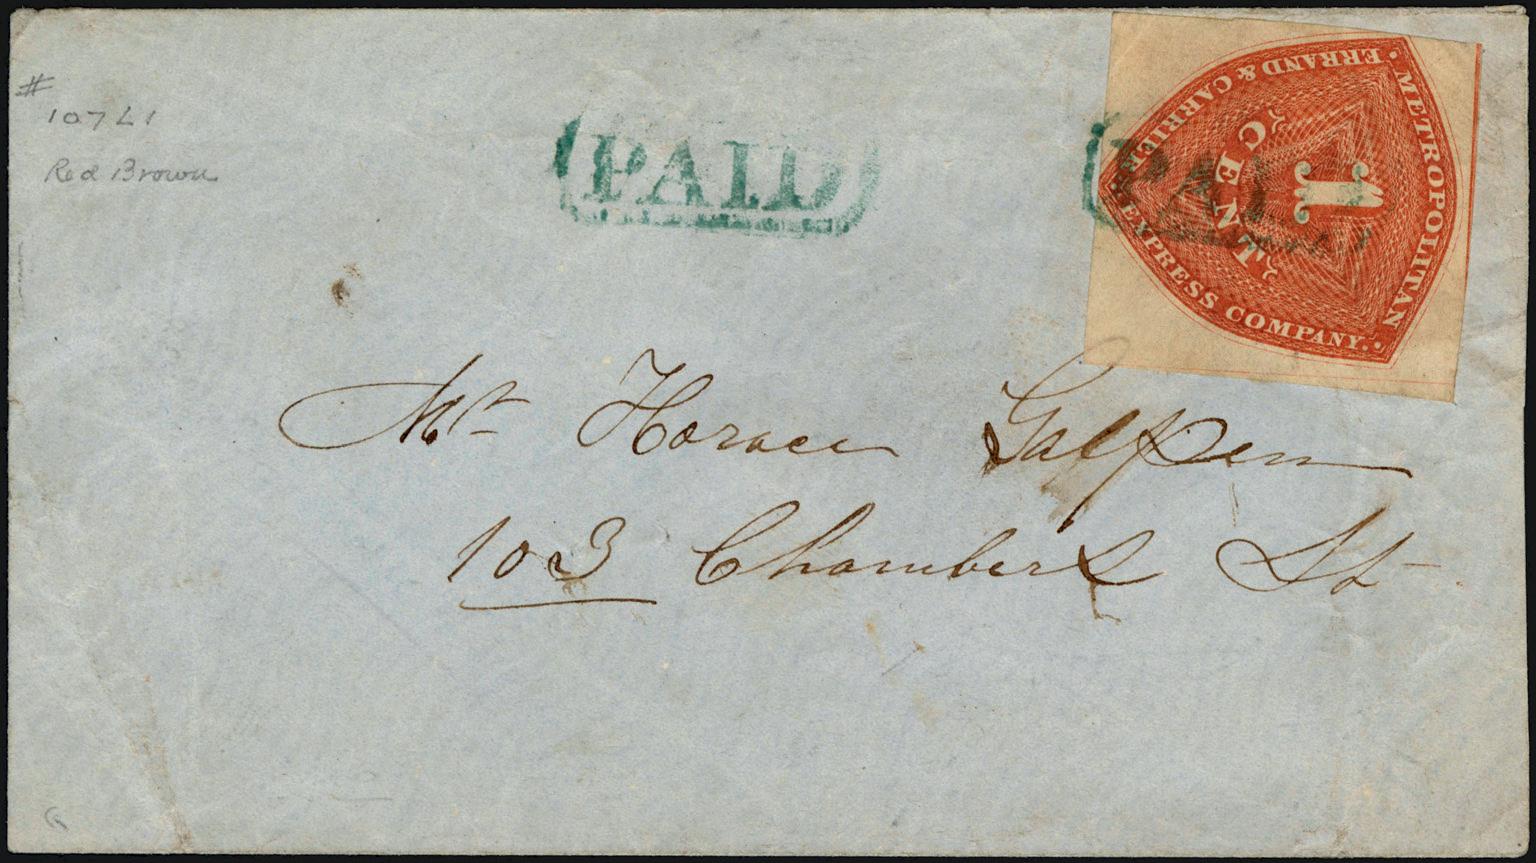 #
107L1
Red Brown
PAID
PAID
METROPOLITAN
ERRAND & CARRIER
EXPRESS COMPANY.
1
CENT
Mr Horace Galpen
103 Chambers St